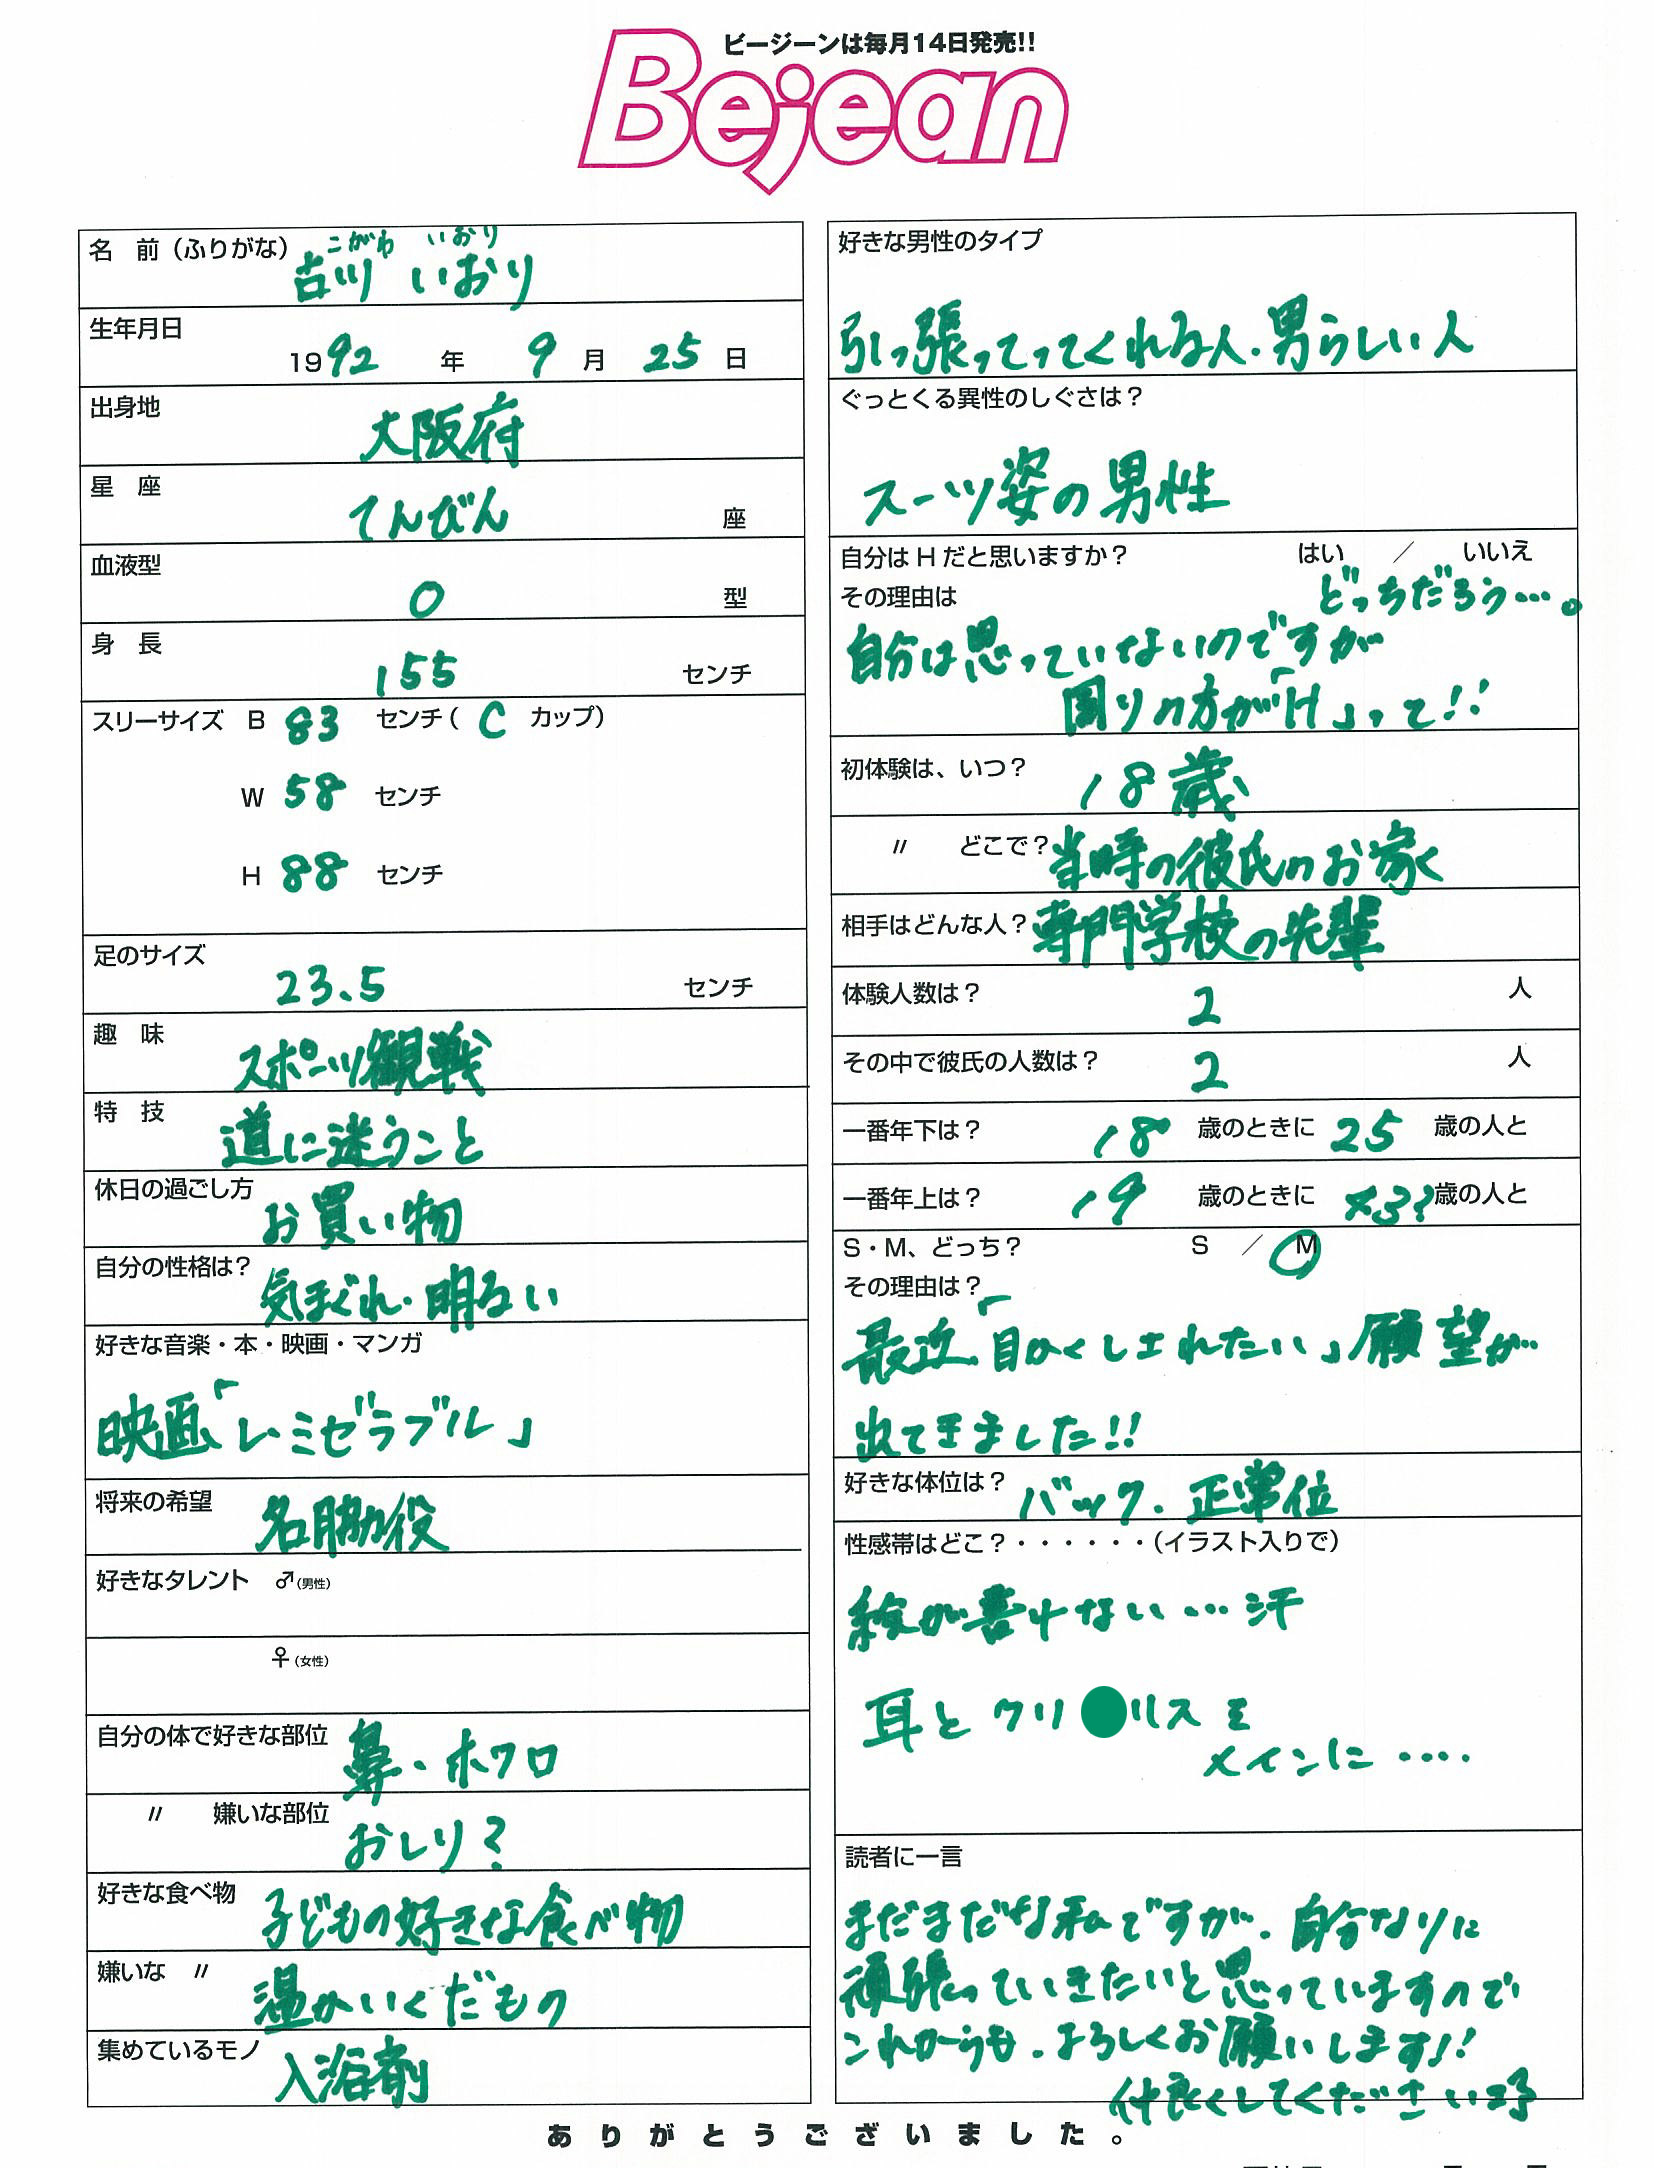 ビージーンは毎月14日発売!!
Bejean
名 前（ふりがな） こがわ いおり
古川 いおり
生年月日
1992 年 9 月 25 日
出身地
大阪府
星 座
てんびん 座
血液型
O 型
身 長
155 センチ
スリーサイズ B 83 センチ（ C カップ）
W 58 センチ
H 88 センチ
足のサイズ
23.5 センチ
趣 味
スポーツ観戦
特 技
道に迷うこと
休日の過ごし方
お買い物
自分の性格は？
気まぐれ・明るい
好きな音楽・本・映画・マンガ
映画「レ・ミゼラブル」
将来の希望
名脇役
好きなタレント ♂（男性）
♀（女性）
自分の体で好きな部位
鼻・ホクロ
〃 嫌いな部位
おしり？
好きな食べ物
子どもの好きな食べ物
嫌いな 〃
温かいくだもの
集めているモノ
入浴剤
好きな男性のタイプ
引っ張ってってくれる人・男らしい人
ぐっとくる異性のしぐさは？
スーツ姿の男性
自分はHだと思いますか？ はい ／ いいえ
その理由は どっちだろう…。
自分は思っていないのですが
周りの方が「H」って!!
初体験は、いつ？ 18歳
〃 どこで？ 当時の彼氏のお家
相手はどんな人？ 専門学校の先輩
体験人数は？ 2 人
その中で彼氏の人数は？ 2 人
一番年下は？ 18 歳のときに 25 歳の人と
一番年上は？ 19 歳のときに ×3? 歳の人と
S・M、どっち？ S ／ M
その理由は？
最近、「目かくしされたい」願望が…
出てきました!!
好きな体位は？ バック・正常位
性感帯はどこ？・・・・・・（イラスト入りで）
絵が書けない…汗
耳とクリ●リスを
メインに….
読者に一言
まだまだな私ですが、自分なりに
頑張っていきたいと思っていますので
これからも、よろしくお願いします!!
仲良くしてください
ありがとうございました。